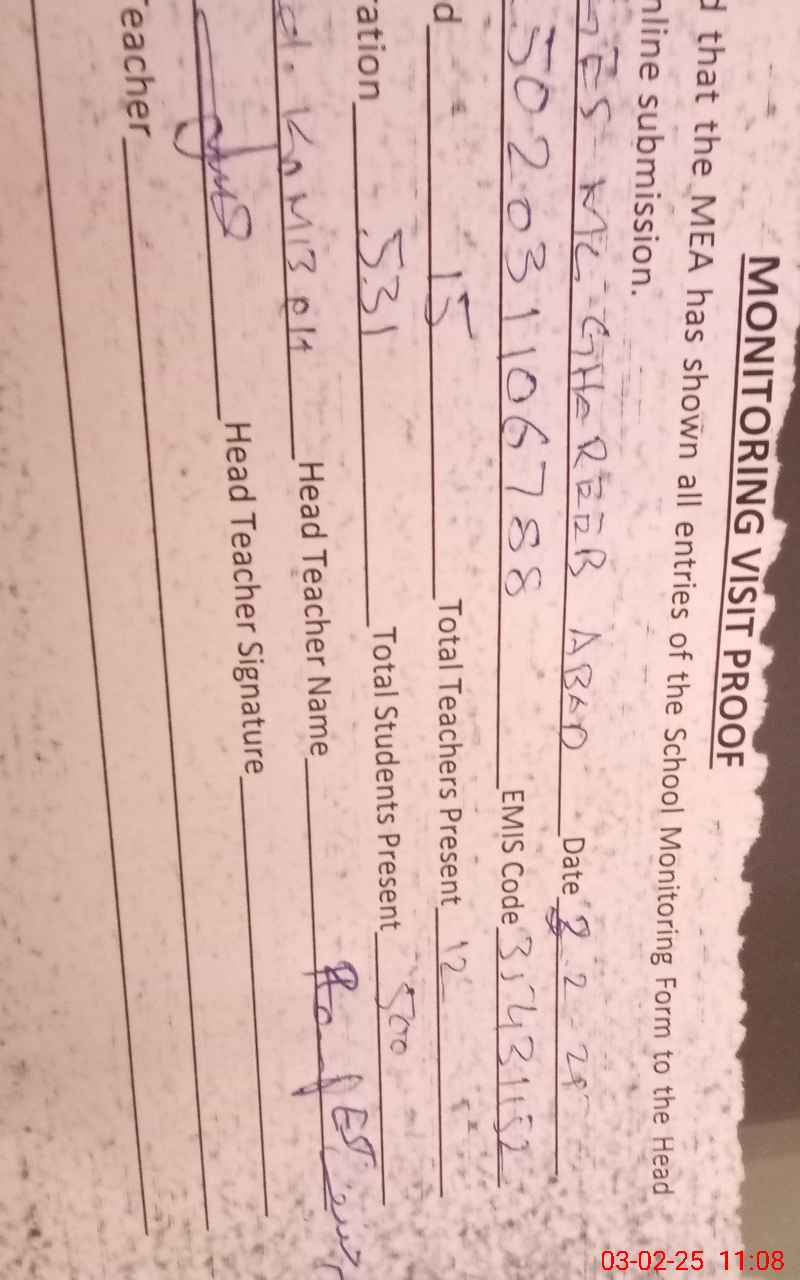 MONITORING VISIT PROOF
d that the MEA has shown all entries of the School Monitoring Form to the Head
nline submission.
GES MC GHAREEB ABAD Date 2-25
50203110678 8 EMIS Code 35431152
d 15 Total Teachers Present 12
ration 531 Total Students Present 500
Head Teacher Name
Head Teacher Signature
eacher
03-02-25 11:08